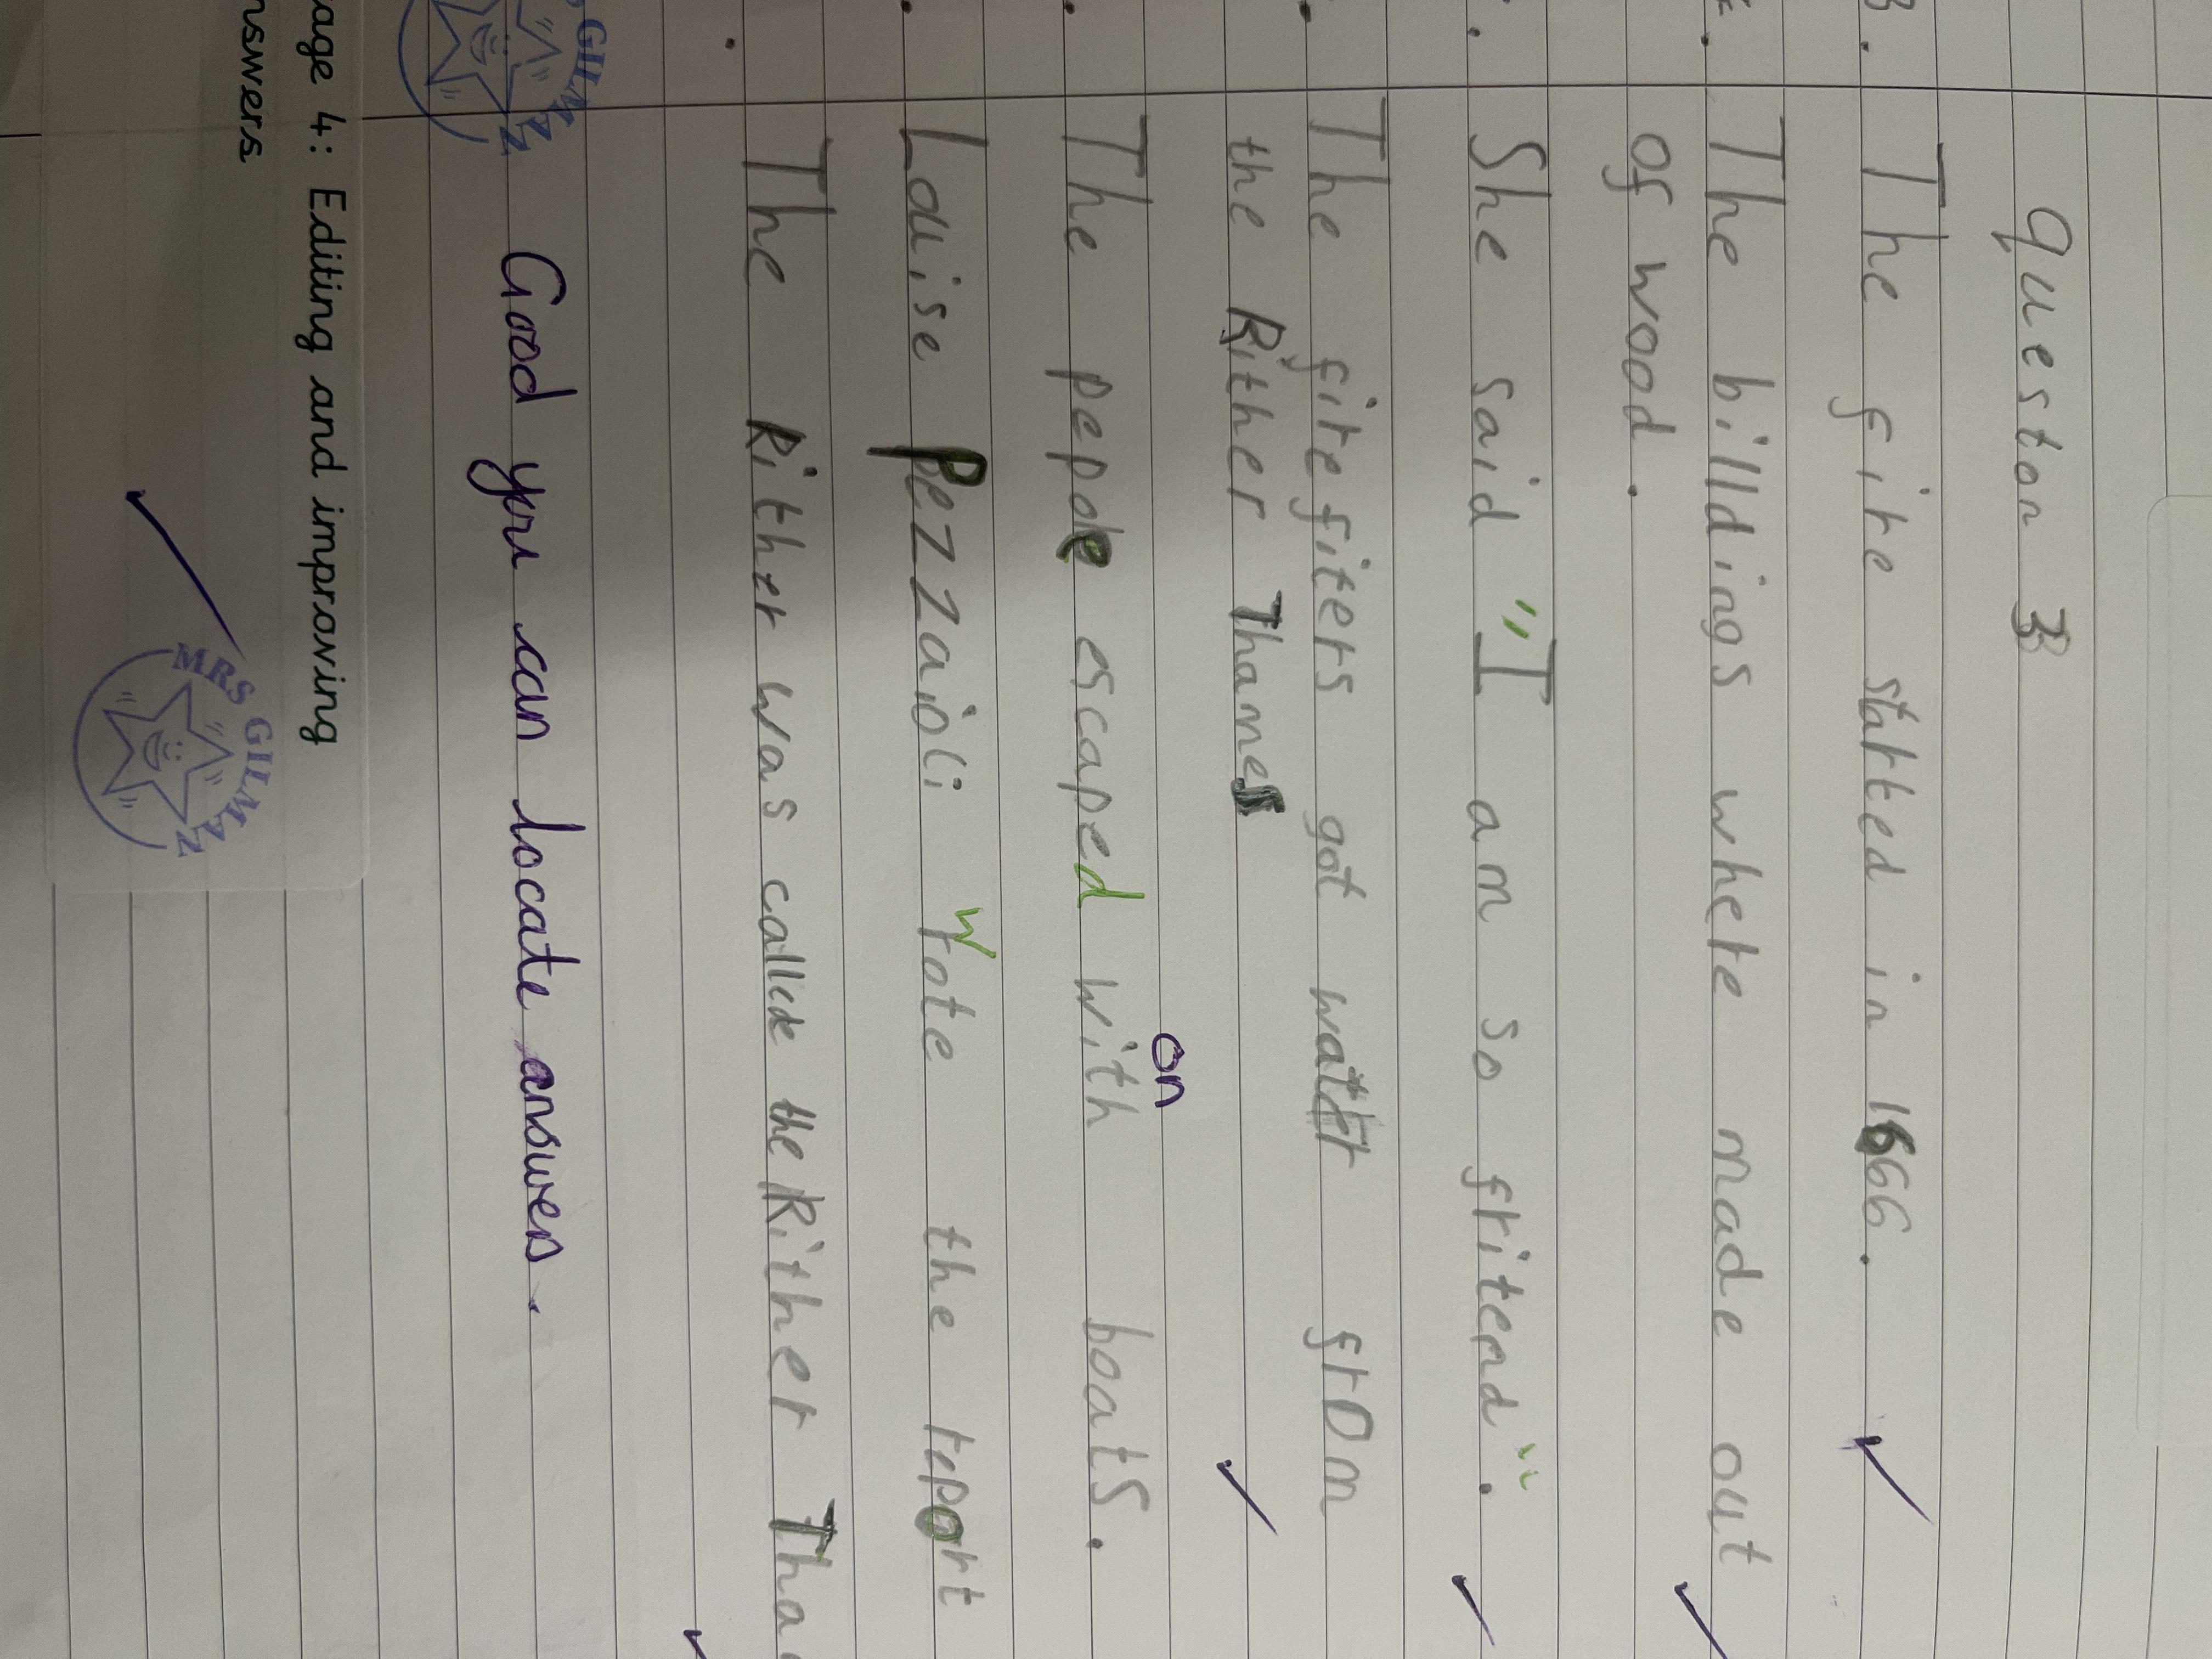 question 3
3. The fire started in 1666.
The billdings where made out
of wood.
She said "I am so fritend".
The firefiters got water from
the Rither Thames
on
The pepole escaped with boats.
Louise Pezzaioli wrote the report
The Rither was callde the Rither Tha
Good you can locate answers.
MRS GILMZ
age 4: Editing and improving
nswers
MRS GILMZ